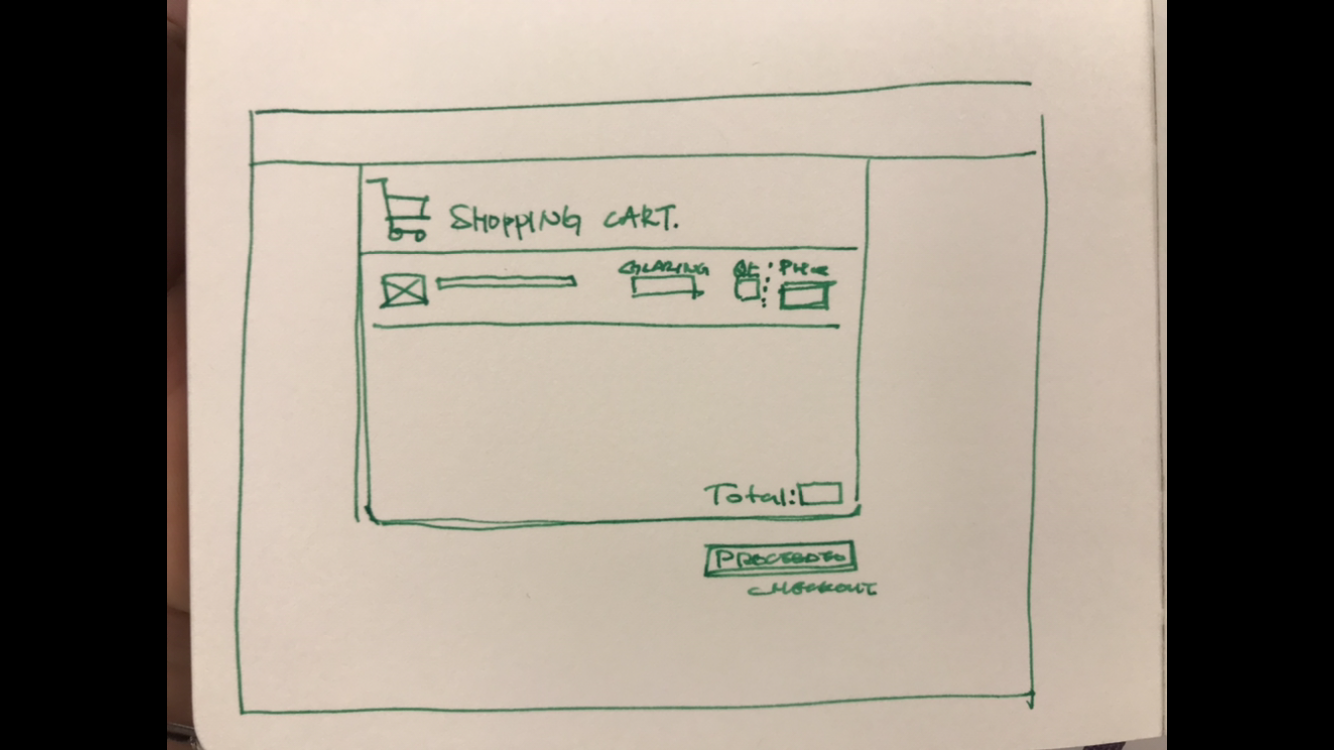 SHOPPING CART.
GLAZING Qt. Price
Total:
PROCEED TO
CHECKOUT